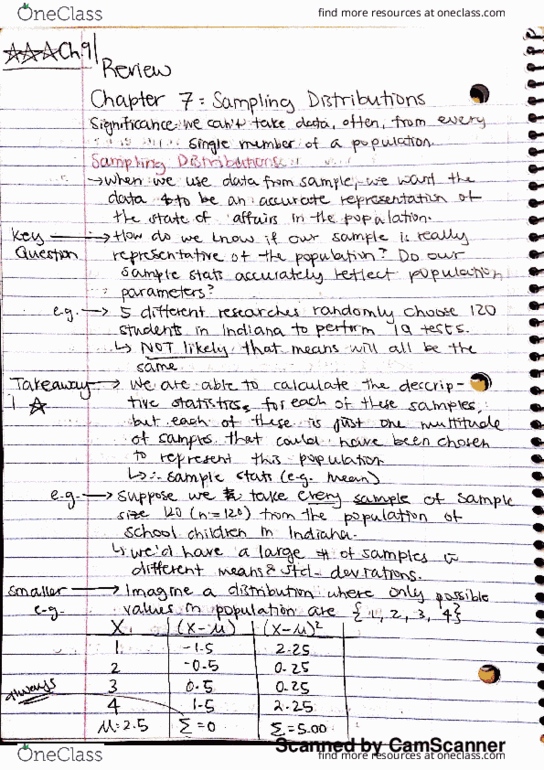 OneClass
find more resources at oneclass.com
Ch.9
Review
Chapter 7: Sampling Distributions
Significance: we can't take data, often, from every
single number of a population.
Sampling Distributions
→ when we use data from sample, we want the
data to be an accurate representation of
the state of affairs in the population.
Key Question → How do we know if our sample is really
representative of the population? Do our
sample stats accurately reflect population
parameters?
e.g. → 5 different researches randomly choose 120
students in Indiana to perform IQ tests.
↳ NOT likely that means will all be the
same
Takeaway 1 ☆ → we are able to calculate the descrip-
tive statistics for each of these samples,
but each of these is just one multitude
of samples that could have been chosen
to represent this population
↳ ∴ sample stats (e.g. mean)
e.g. → suppose we take every sample of sample
size 120 (n=120) from the population of
school children in Indiana.
↳ we'd have a large # of samples
different means & std. deviations.
smaller e.g. → Imagine a distribution where only possible
values in population are {1, 2, 3, 4}
X (X-μ) (X-μ)²
1 -1.5 2.25
2 -0.5 0.25
3 0.5 0.25
4 1.5 2.25
always
μ=2.5 Σ=0 Σ=5.00
Scanned by CamScanner
OneClass
find more resources at oneclass.com